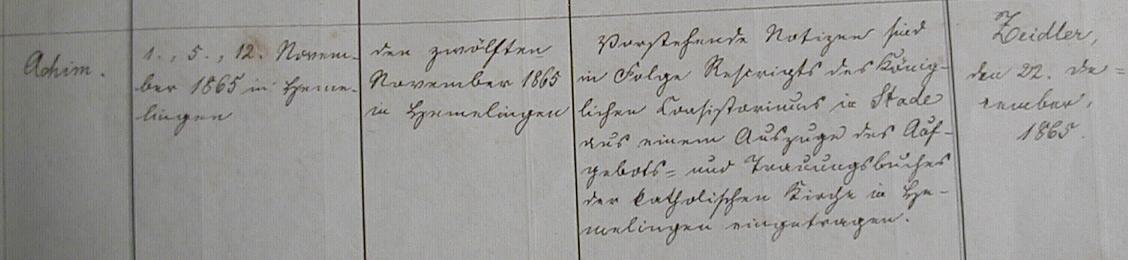 Achim.
1., 5., 12. Novem-
ber 1865 in Heme-
lingen
den zwölften
November 1865
in Hemelingen
Vorstehende Notizen sind
in Folge Rescripts des König-
lichen Consistoriums in Stade
aus einem Auszuge des Auf-
gebots- und Trauungsbuches
der katholischen Kirche in He-
melingen eingetragen.
Zeidler,
den 22. De-
cember,
1865.